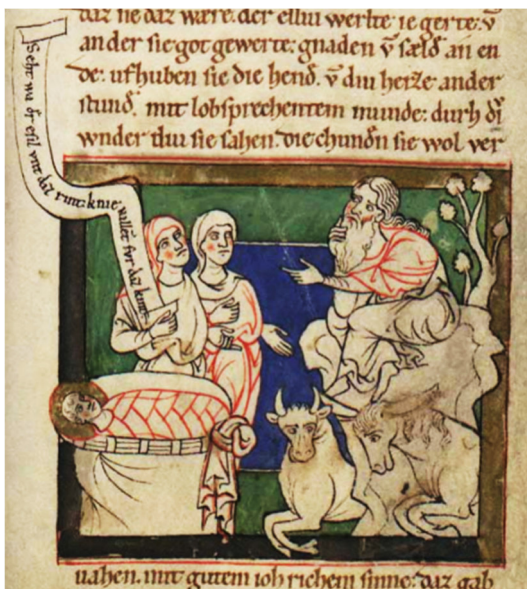 daz sie daz wære. der elliu werlte ie gerte: v̄
an der sie got gewerte: gnaden v̄ sæld̄ an en
de: ufhuben sie die hend̄. v̄ diu herze ander
stund̄. mit lobsprechentem munde: durh di
wnder diu sie sahen. die chundn̄ sie wol ver
Seht wa dr esil vnt daz rint: knie uallet fvr daz kint.
nahen. mit gutem ioh richem sinne: daz gab